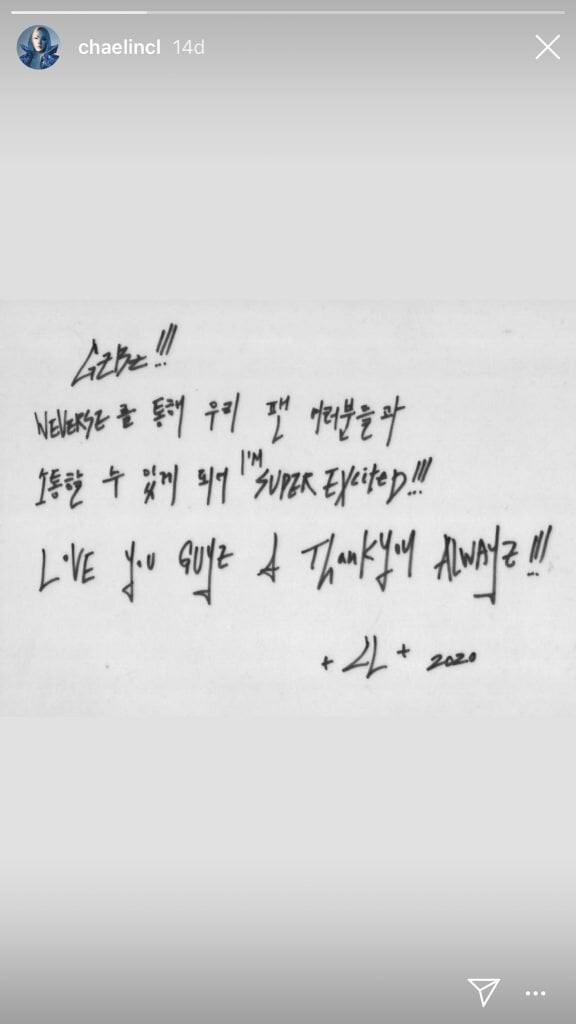 chaelincl 14d
GZBz!!!
WEVERSE를 통해 우리 팬 여러분들과
소통할 수 있게 되어 I'M SUPER EXCITED!!!
LOVE YOU GUYZ & THANKYOU ALWAYZ!!!
+ CL + 2020